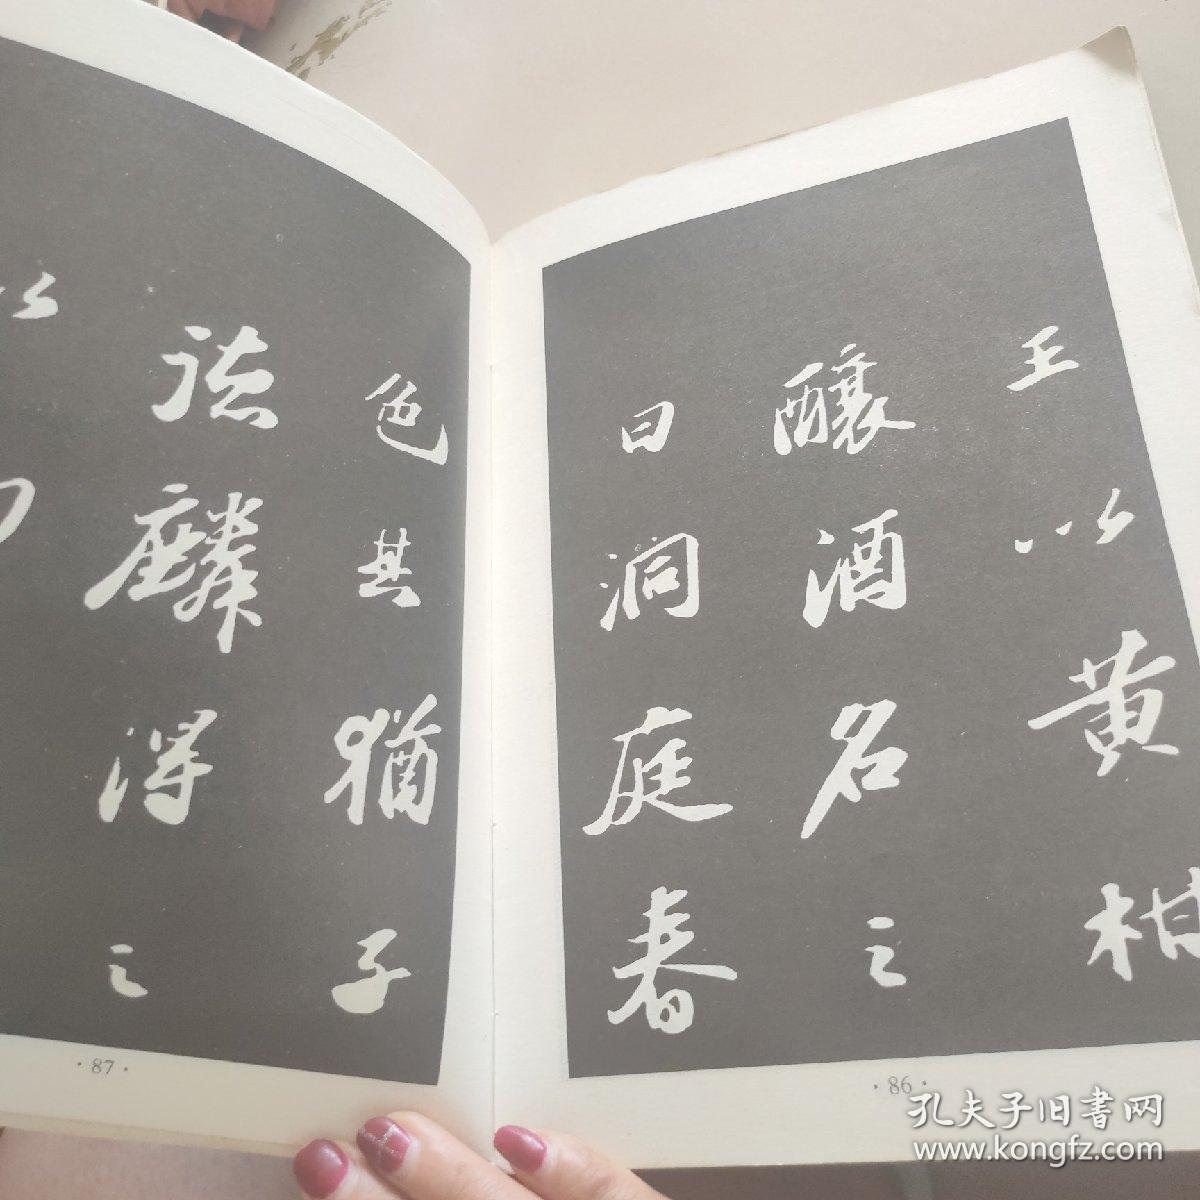 王以黄柑
釀酒名之
曰洞庭春
色其猶子
德麟得之
以
·86·
·87·
孔夫子旧書网
www.kongfz.com